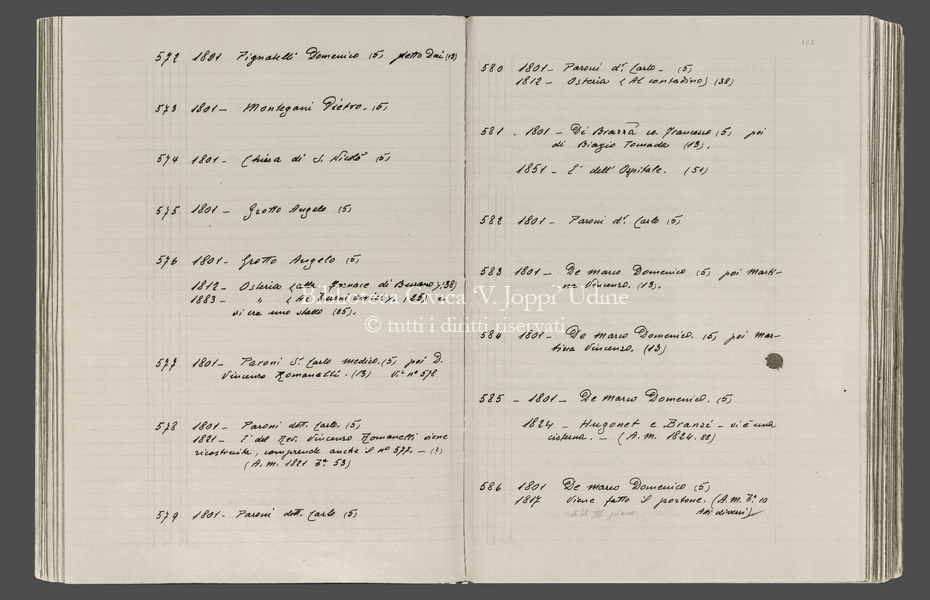 572 1801 Pignatelli Domenico (5) detto Dai (13)
573 1801 - Montegani Pietro. (5)
574 1801 - Chiesa di S. Nicolò (5)
575 1801 - Grotto Angelo (5)
576 1801 - Grotto Angelo (5)
1812 - Osteria (alla Fornace di Burano) (38)
1883 - " (Al
vi era uno stallo (25).
577 1801 - Paroni Dr. Carlo medico. (5) poi D.
Vincenzo Romanelli. (13) V. n° 578
578 1801 - Paroni dott. Carlo. (5)
1821 - È del Rev. Vincenzo Romanelli viene
ricostruita, comprende anche il n° 577. - (?)
(A.M. 1821 Ba. 53)
579 1801 - Paroni dott. Carlo (5)
102
580 1801 - Paroni dr. Carlo - (5)
1812 - Osteria (Al contadino) (38)
581 - 1801 - Di Brazzà co. Francesco (5) poi
di Biagio Tomada (13).
1851 - È dell'Ospitale. (51)
582 1801 - Paroni dr. Carlo (5)
583 1801 - De Marco Domenico (5) poi Marti-
na Vincenzo. (13).
584 1801 - De Marco Domenico. (5) poi Mar-
tina Vincenzo. (13)
585 - 1801 - De Marco Domenico. (5)
1824 - Hugonet e Branzi - vi è una
cisterna. - (A.M. 1824. 88)
586 1801 De Marco Domenico (5)
1817 Viene fatto il portone. (A.M. Ba. 10
ed il III piano
Atti diversi)
Biblioteca Civica 'V. Joppi' Udine
© tutti i diritti riservati